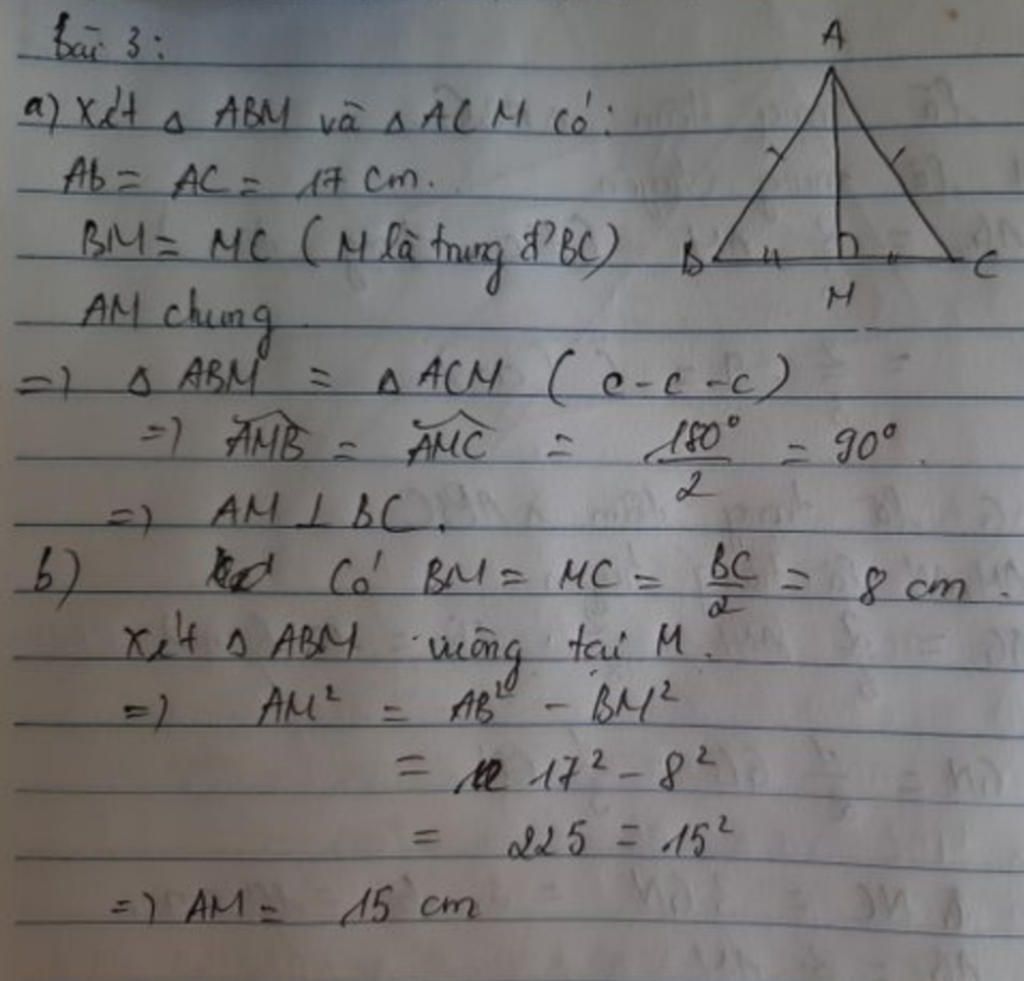 Bài 3:
a) Xét △ ABM và △ ACM có:
Ab = AC = 17 cm.
BM = MC (M là trung đ² BC)
AM chung
=> △ ABM = △ ACM (c-c-c)
=> \widehat{AMB} = \widehat{AMC} = \frac{180°}{2} = 90°.
=> AM ⊥ BC.
b) Có BM = MC = \frac{BC}{2} = 8 cm.
Xét △ ABM vuông tại M.
=> AM² = AB² - BM²
= 17² - 8²
= 225 = 15²
=> AM = 15 cm
A
B
M
C